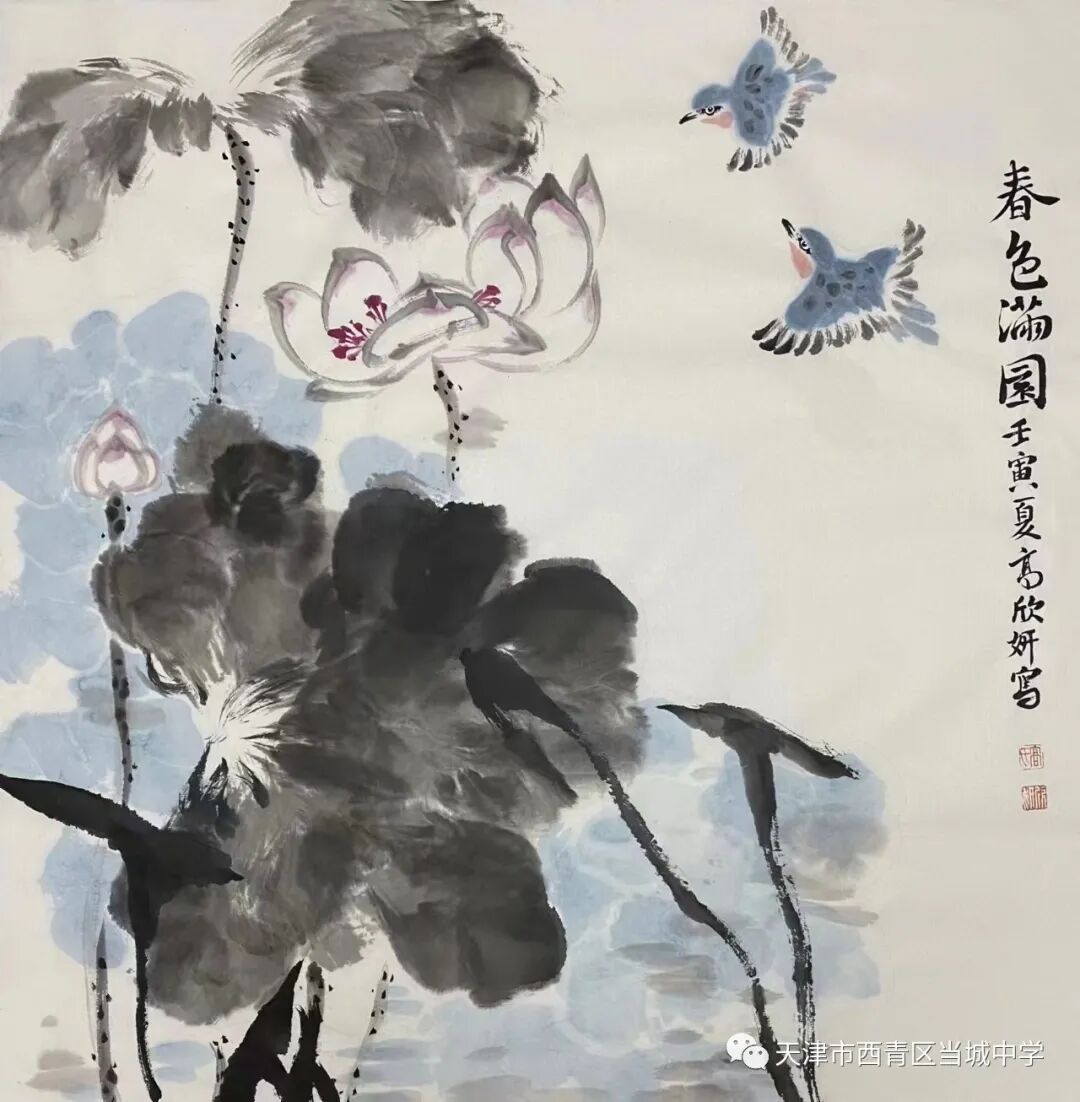 春色满園壬寅夏高欣妍写
天津市西青区当城中学